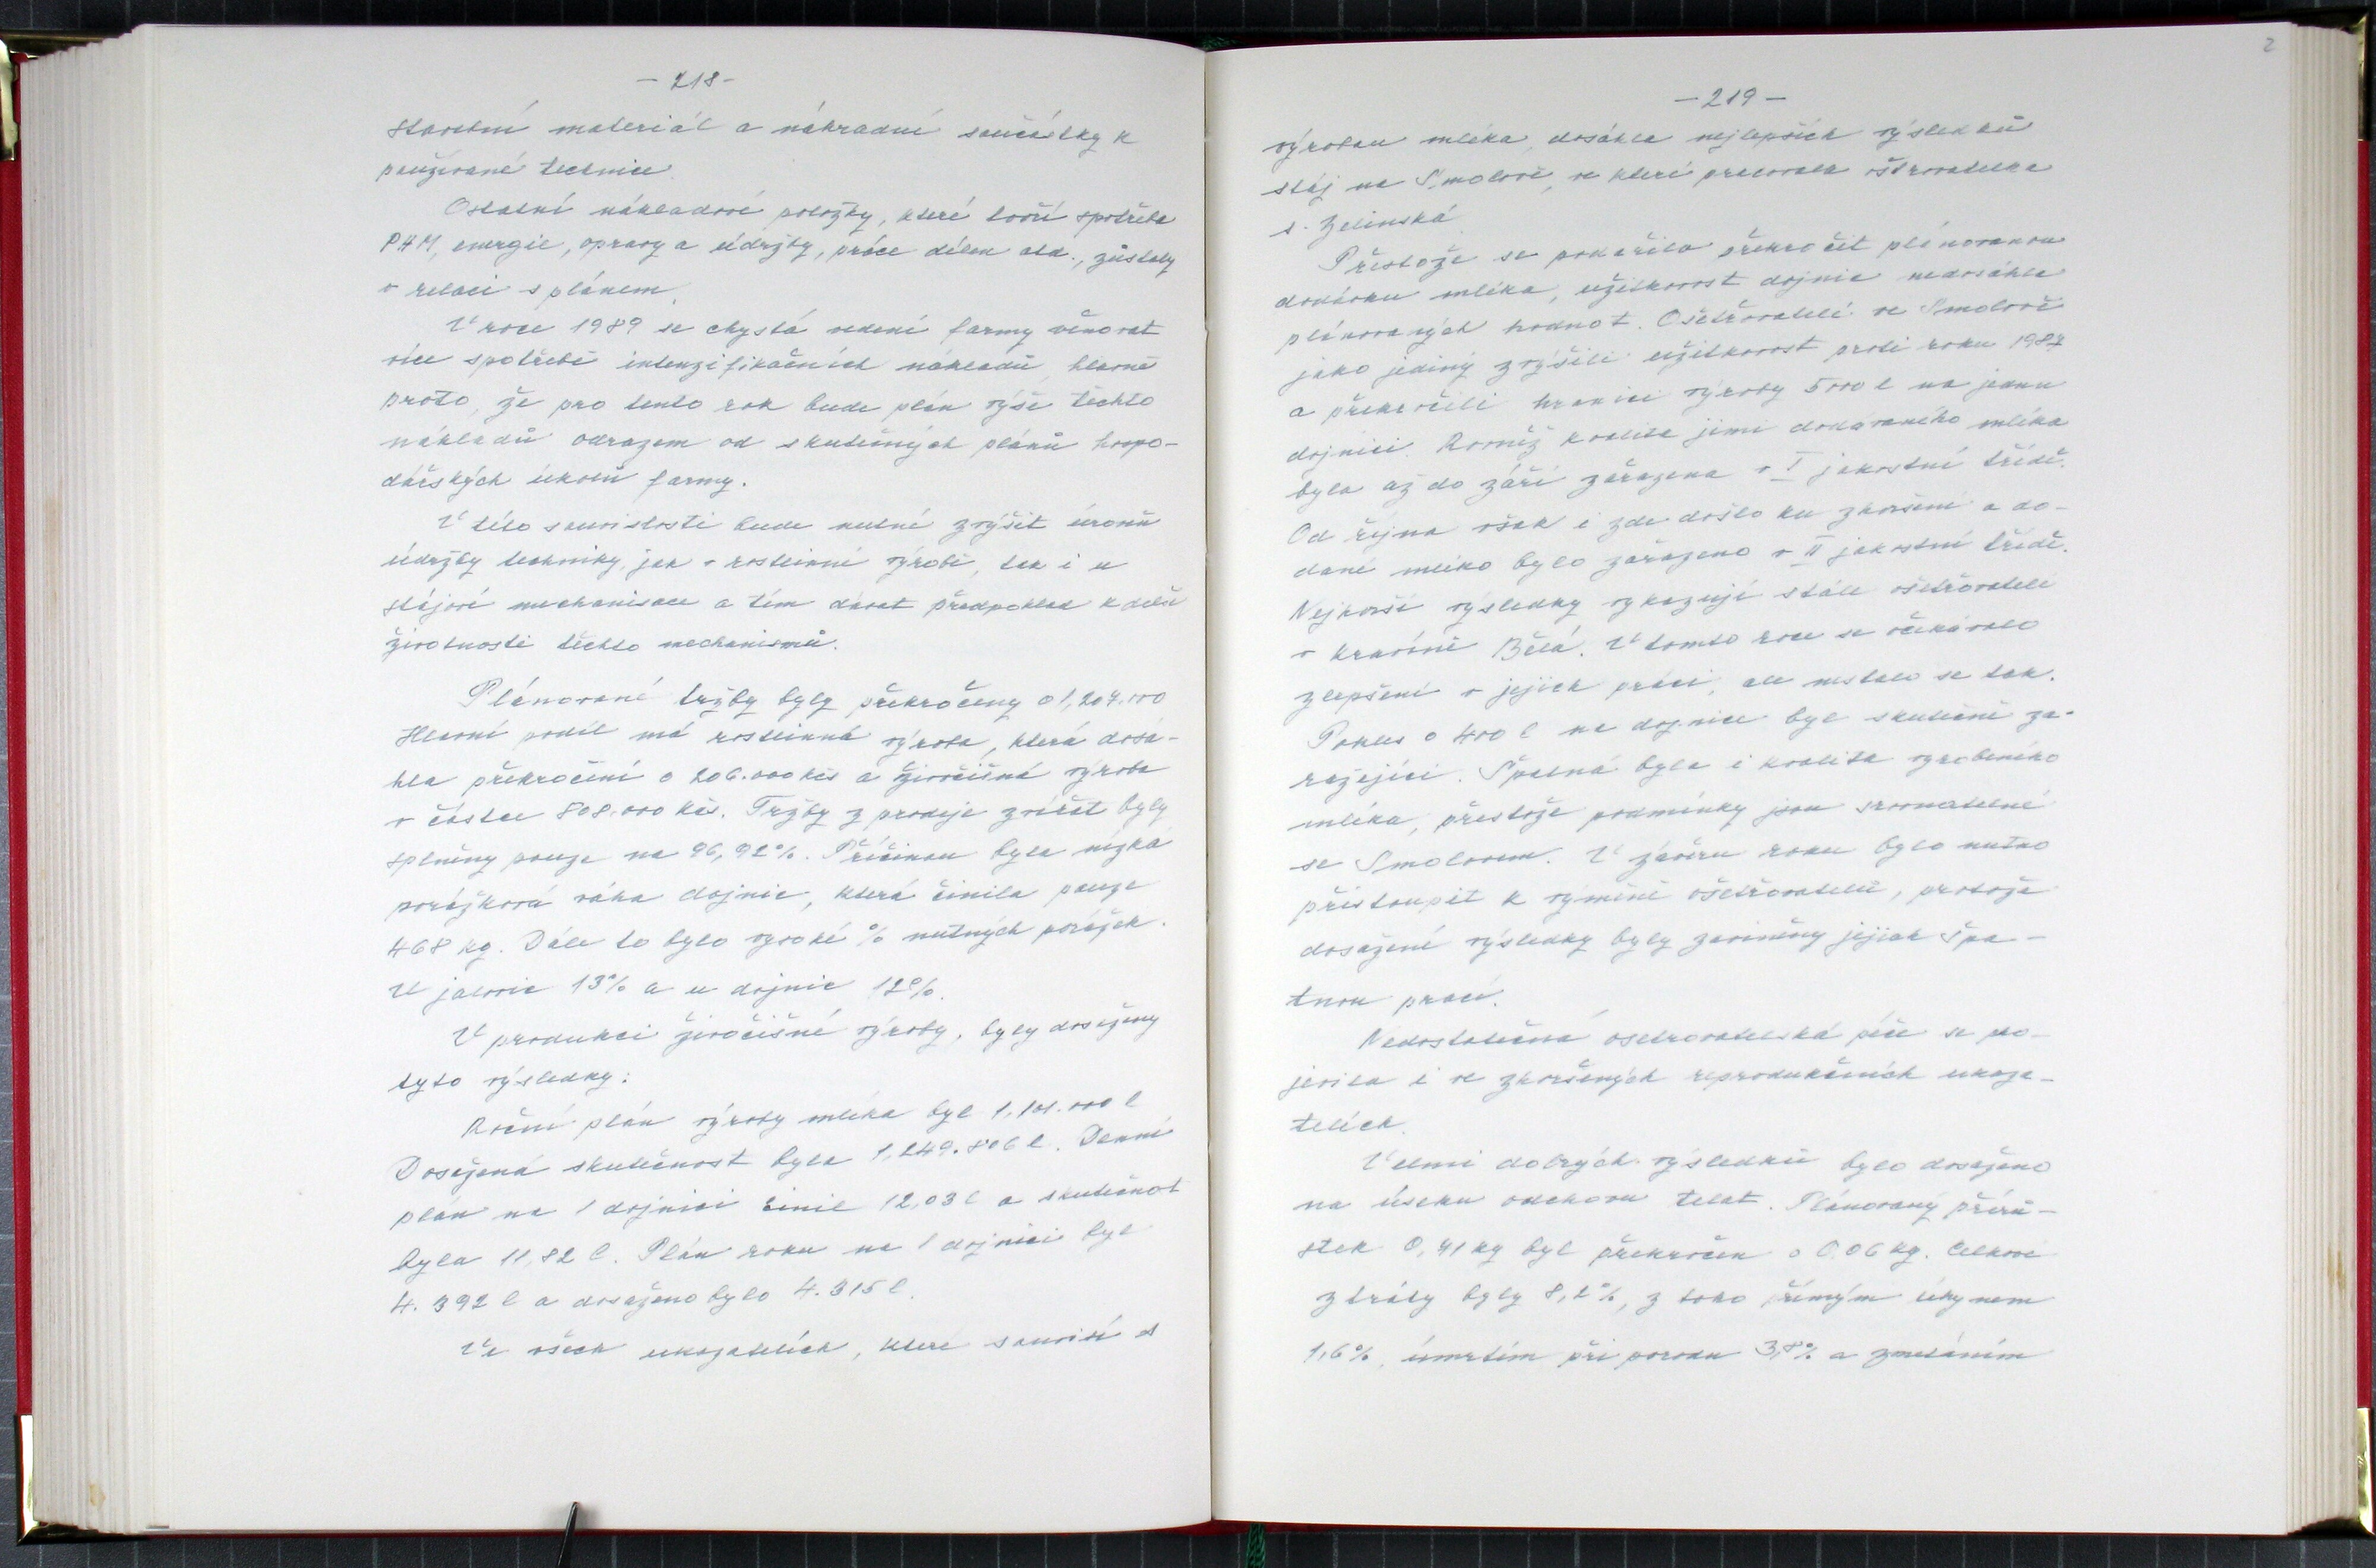 - 218 -
stavební materiál a náhradní součástky k
používané technice.
Ostatní nákladové položky, které tvoří spotřeba
PHM, energie, opravy a údržby, práce dílen atd., zůstaly
v relaci s plánem.
V roce 1989 se chystá vedení farmy věnovat
více spotřebě intenzifikačních nákladů, hlavně
proto, že pro tento rok bude plán výše těchto
nákladů odrazem od skutečných plánů hospo-
dářských úkolů farmy.
V této souvislosti bude nutné zvýšit úroveň
údržby techniky, jak v rostlinné výrobě, tak i u
stájové mechanisace a tím dávat předpoklad k delší
životnosti těchto mechanismů.
Plánované tržby byly překročeny o 1,207.000
Hlavní podíl má rostlinná výroba, která dosá-
hla překročení o 206.000 kčs a živočišná výroba
v částce 808.000 kčs. Tržby z prodeje zvířat byly
splněny pouze na 96,92%. Příčinou byla nízká
porážková váha dojnic, která činila pouze
468 kg. Dále to bylo vysoké % nutných porážek.
U jalovic 13% a u dojnic 12%.
V produkci živočišné výroby, byly dosaženy
tyto výsledky:
Roční plán výroby mléka byl 1,101.000 l
Dosažená skutečnost byla 1,249.806 l. Denní
plán na 1 dojnici činil 12,03 l a skutečnot
byla 11,82 l. Plán roku na 1 dojnici byl
4.392 l a dosaženo bylo 4.315 l.
Ve všech ukazatelích, které souvisí s
2
- 219 -
výrobou mléka, dosáhla nejlepších výsledků
stáj na Smolově, ve které pracovala ošetřovatelka
s. Zelinská.
Přestože se podařilo překročit plánovanou
dodávku mléka, užitkovost dojnic nedosáhla
plánovaných hodnot. Ošetřovatelé ve Smolově
jako jediný zvýšili užitkovost proti roku 1987
a překročili hranici výroby 5000 l na jednu
dojnici. Rovněž kvalita jimi dodávaného mléka
byla až do září zařazena v I jakostní třídě.
Od října však i zde došlo ku zhoršení a do-
dané mléko bylo zařazeno v II jakostní třídě.
Nejhorší výsledky vykazují stále ošetřovatelé
v kravíně Bělá. V tomto roce se očekávalo
zlepšení v jejich práci, ale nestalo se tak.
Pokles o 400 l na dojnice byl skutečně za-
rážející. Špatná byla i kvalita vyrobeného
mléka, přestože podmínky jsou srovnatelné
se Smolovem. V závěru roku bylo nutno
přistoupit k výměně ošetřovatelů, protože
dosažené výsledky byly zaviněny jejich špa-
tnou prací.
Nedostatečná ošetřovatelská péče se pro-
jevila i ve zhoršených reprodukčních ukaza-
telích.
Velmi dobrých výsledků bylo dosaženo
na úseku odchovu telat. Plánovaný přírů-
stek 0,41 kg byl překročen o 0.06 kg. Celkové
ztráty byly 8,2%, z toho přímým úhynem
1,6%, úmrtím při porodu 3,8% a zmetáním